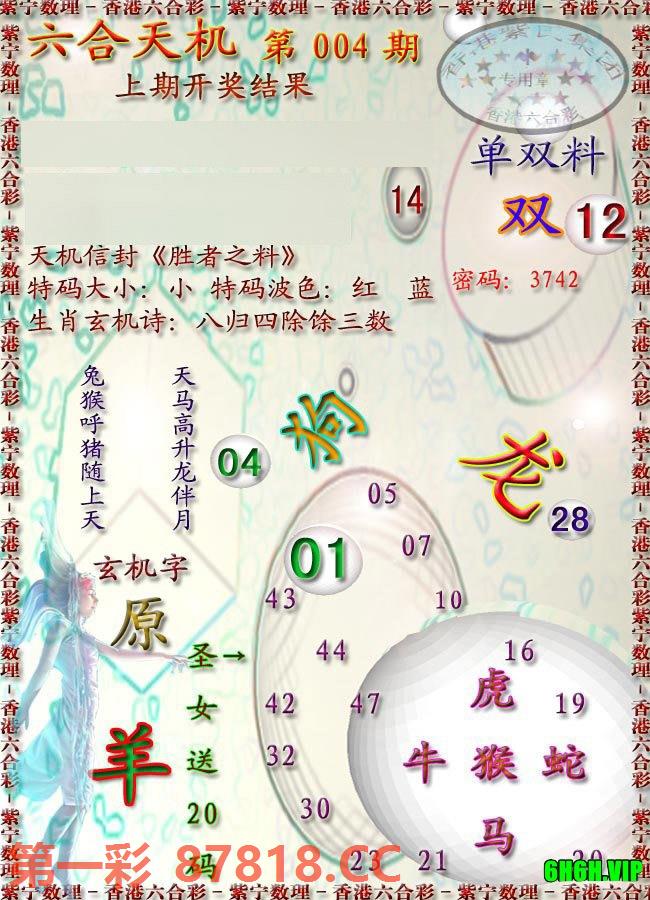 紫宁数理－香港六合彩－紫宁数理－香港六合彩－紫宁数理－香港六合彩
六合天机 第 004 期
香港紫宁集团
专用章
香港六合彩
上期开奖结果
单双料
14
双 12
天机信封《胜者之料》
特码大小：小 特码波色：红 蓝
密码：3742
生肖玄机诗：八归四除馀三数
天马高升龙伴月
兔猴呼猪随上天
04
狗
龙
28
05
01
07
玄机字
原
43
10
圣女送20码
→
44
16
虎
42
47
19
羊
32
牛 猴 蛇
30
马
23
21
20
第一彩 87818.CC
6H6H.VIP
紫宁数理－香港六合彩－紫宁数理－香港六合彩－紫宁数理－香港六合彩